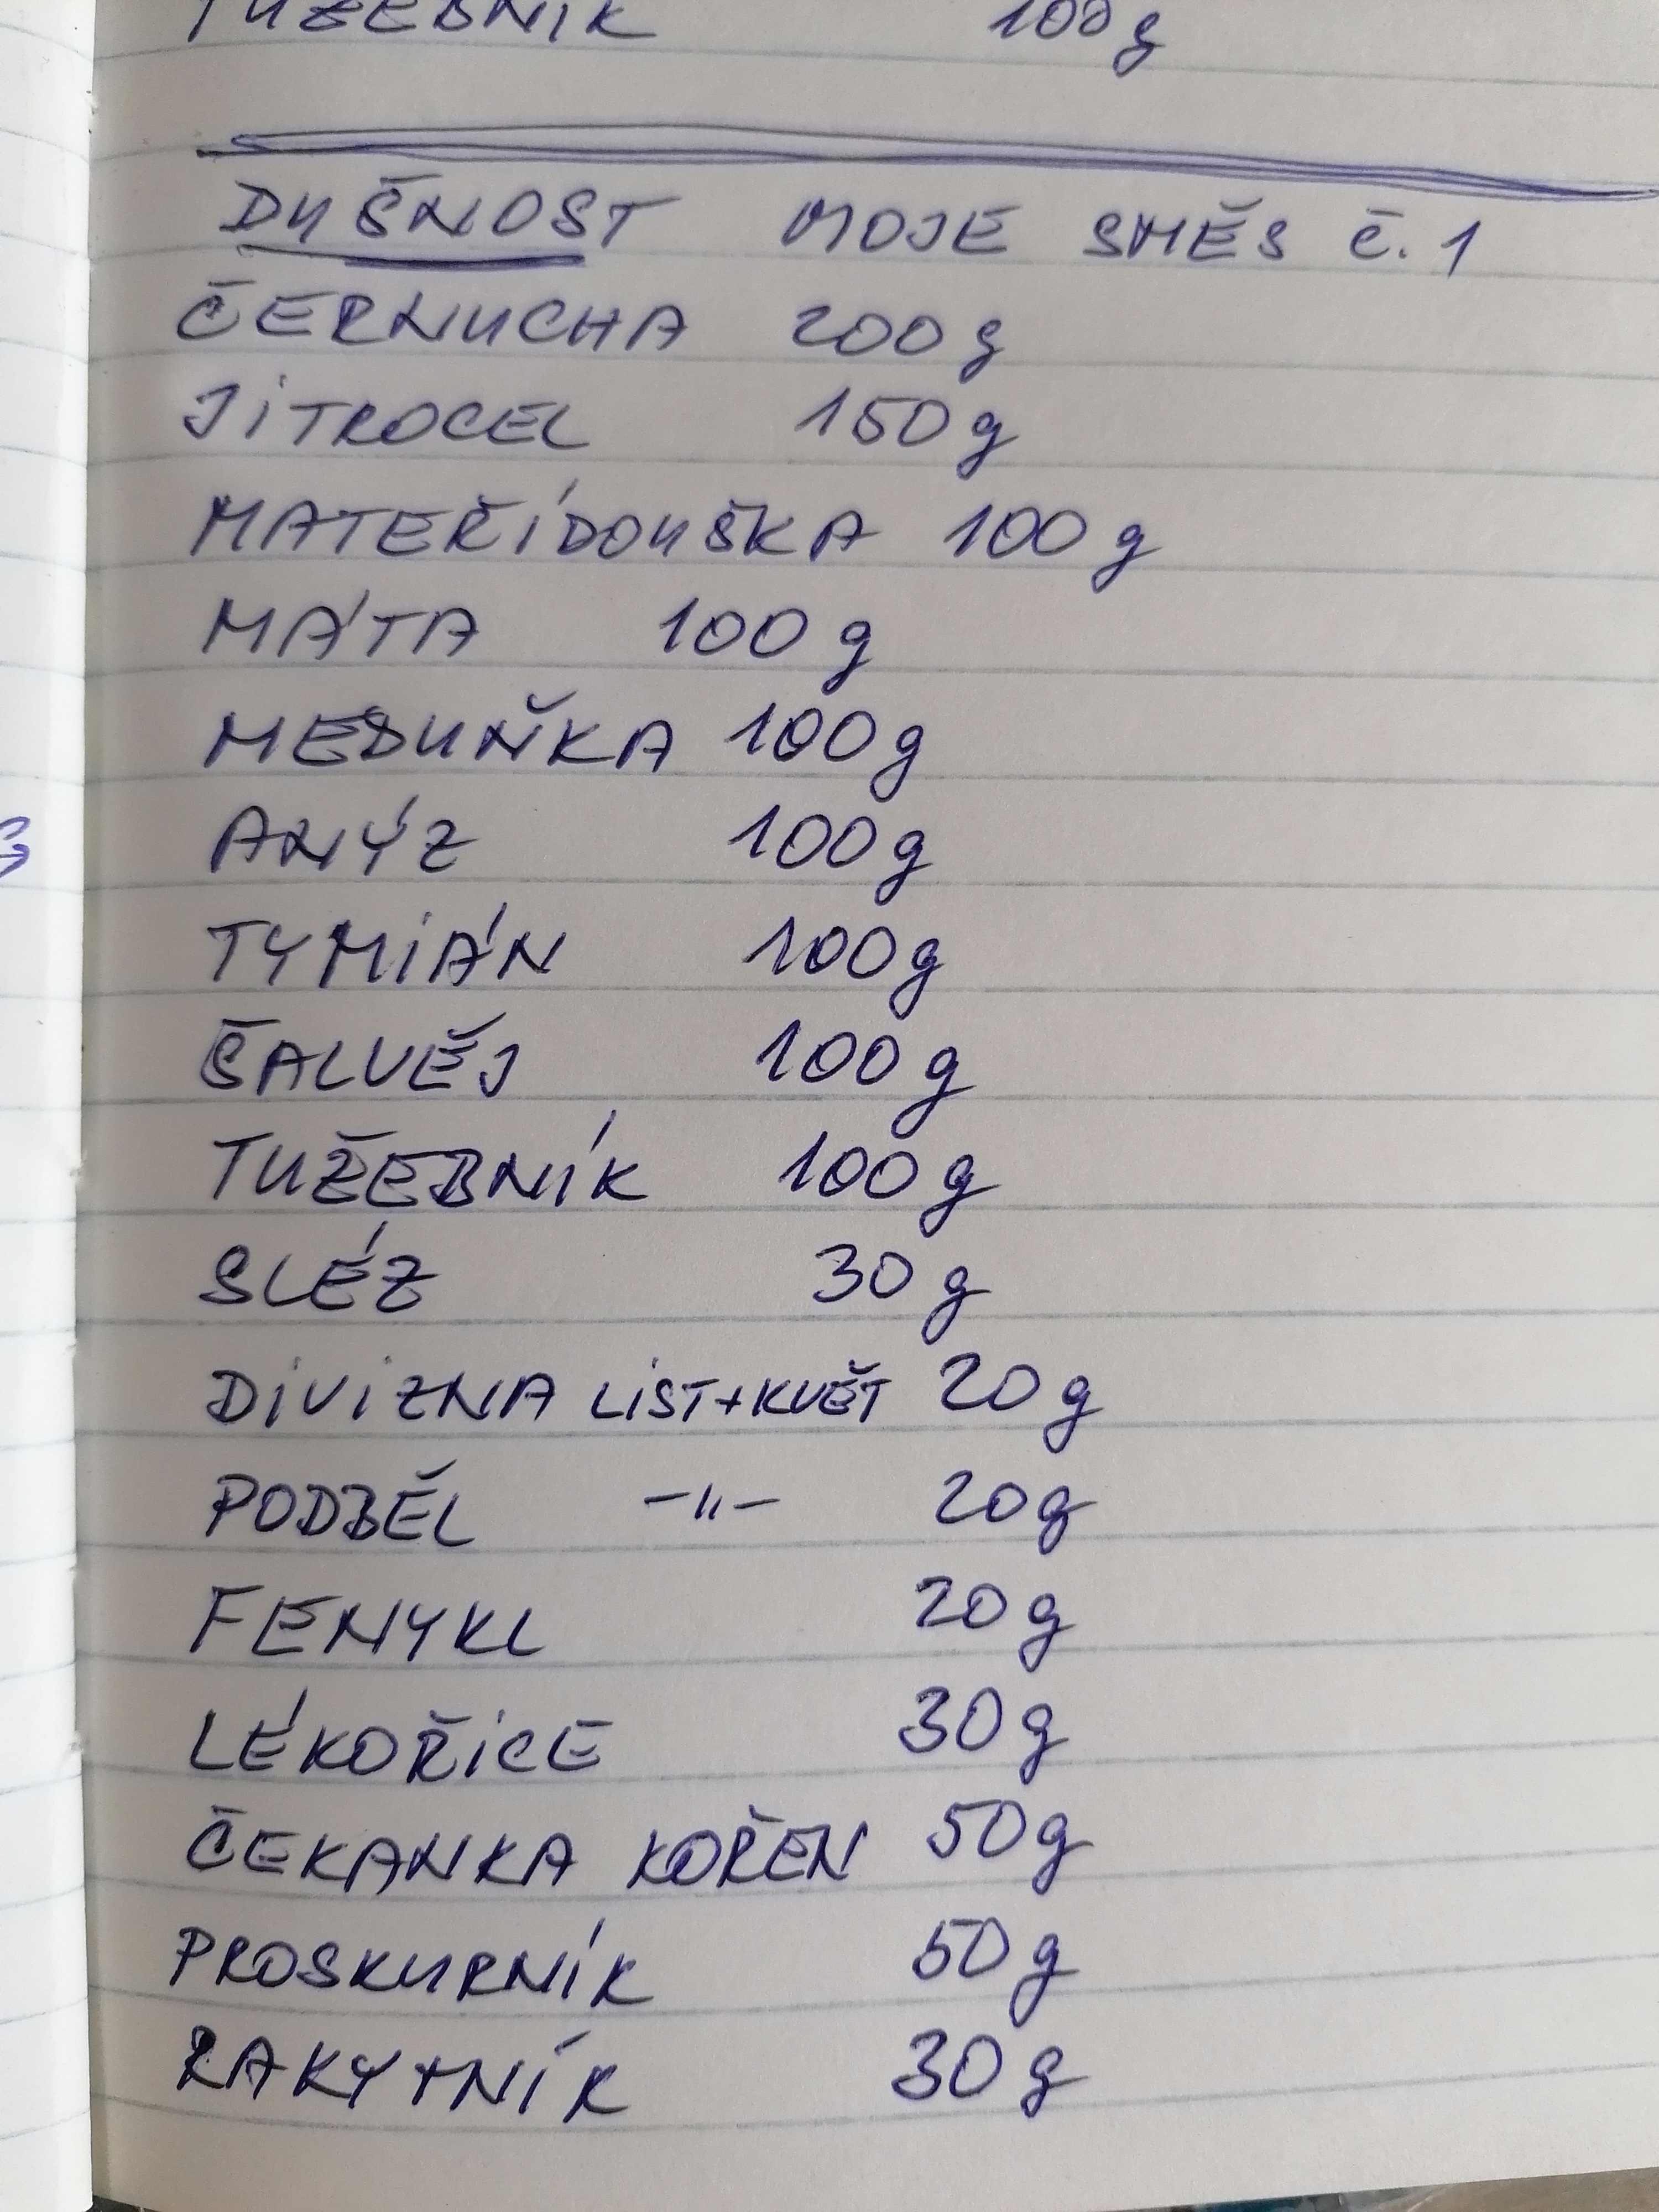 TUŽEBNÍK 100g
DUŠNOST MOJE SMĚS č. 1
ČERNUCHA 200g
JITROCEL 150g
MATEŘÍDOUŠKA 100g
MÁTA 100g
MEDUŇKA 100g
ANÝZ 100g
TYMIÁN 100g
ŠALVĚJ 100g
TUŽEBNÍK 100g
SLÉZ 30g
DIVIZNA LIST+KVĚT 20g
PODBĚL -"- 20g
FENYKL 20g
LÉKOŘICE 30g
ČEKANKA KOŘEN 50g
PROSKURNÍK 50g
RAKYTNÍK 30g